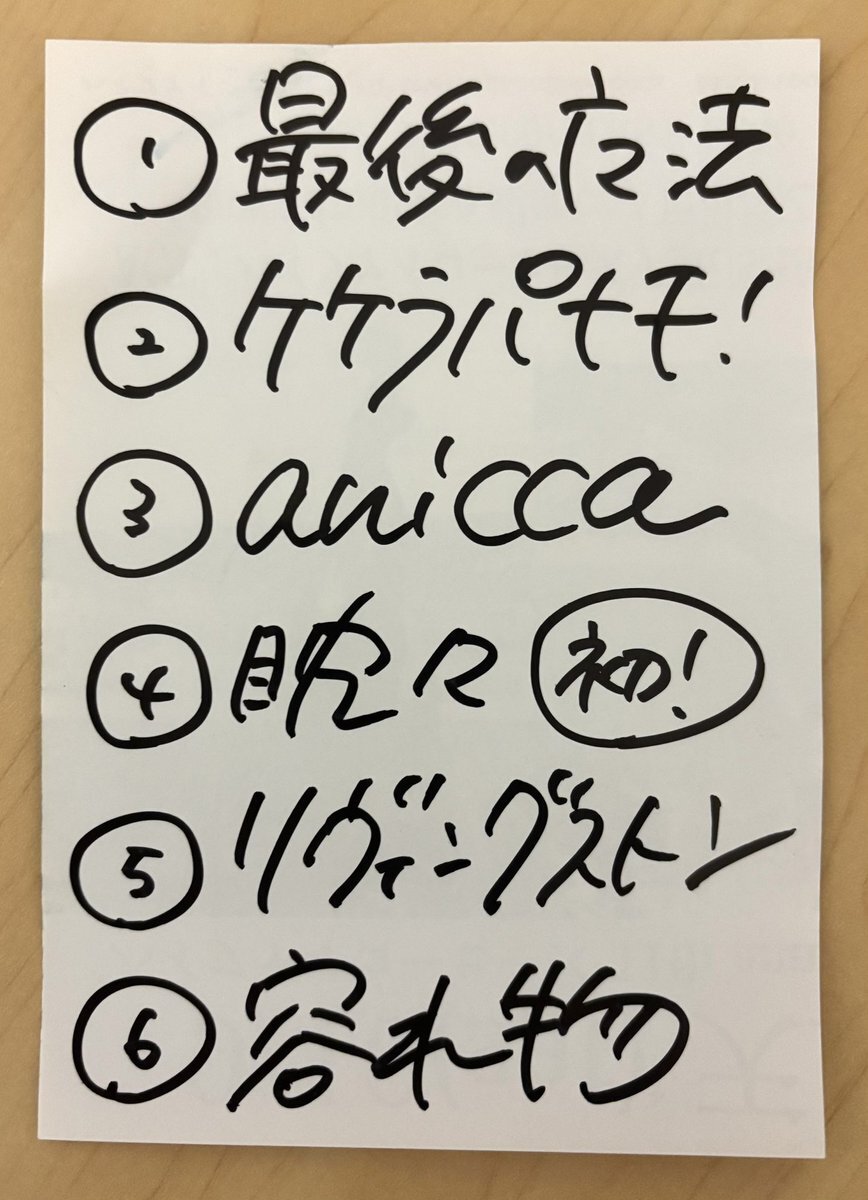 ① 最後の魔法
② ケケラパナモ!
③ anicca
④ 眈々 初!
⑤ リヴィングストン
⑥ 容れ物